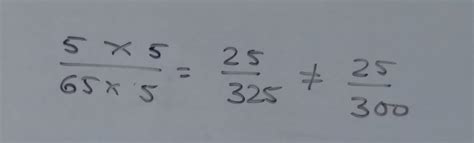 5 × 5 / 65 × 5 = 25 / 325 ≠ 25 / 300